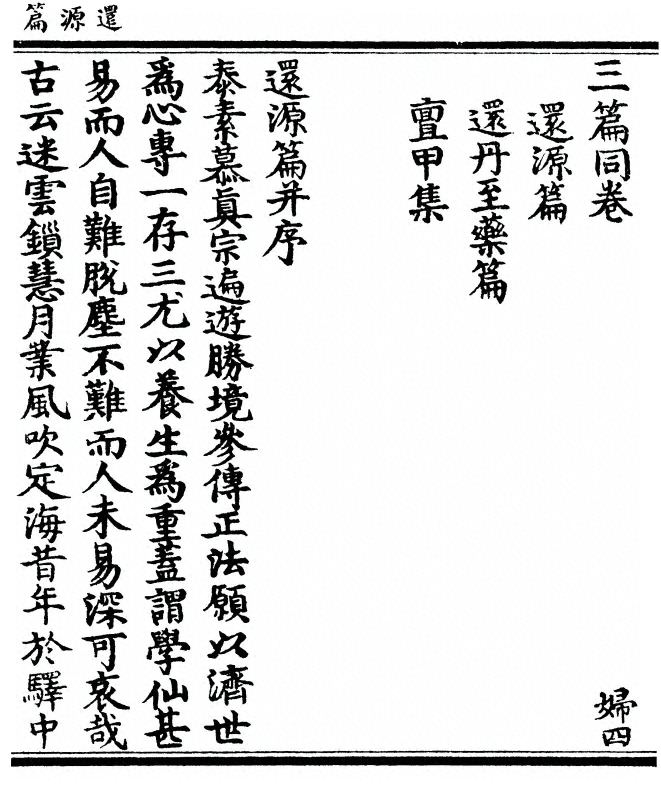 還源篇
三篇同卷 婦四
還源篇
還丹至藥篇
亶甲集
還源篇并序
泰素慕眞宗遍遊勝境參傳正法願以濟世
爲心專一存三尤以養生爲重蓋謂學仙甚
易而人自難脫塵不難而人未易深可哀哉
古云迷雲鎖慧月業風吹定海昔年於驛中